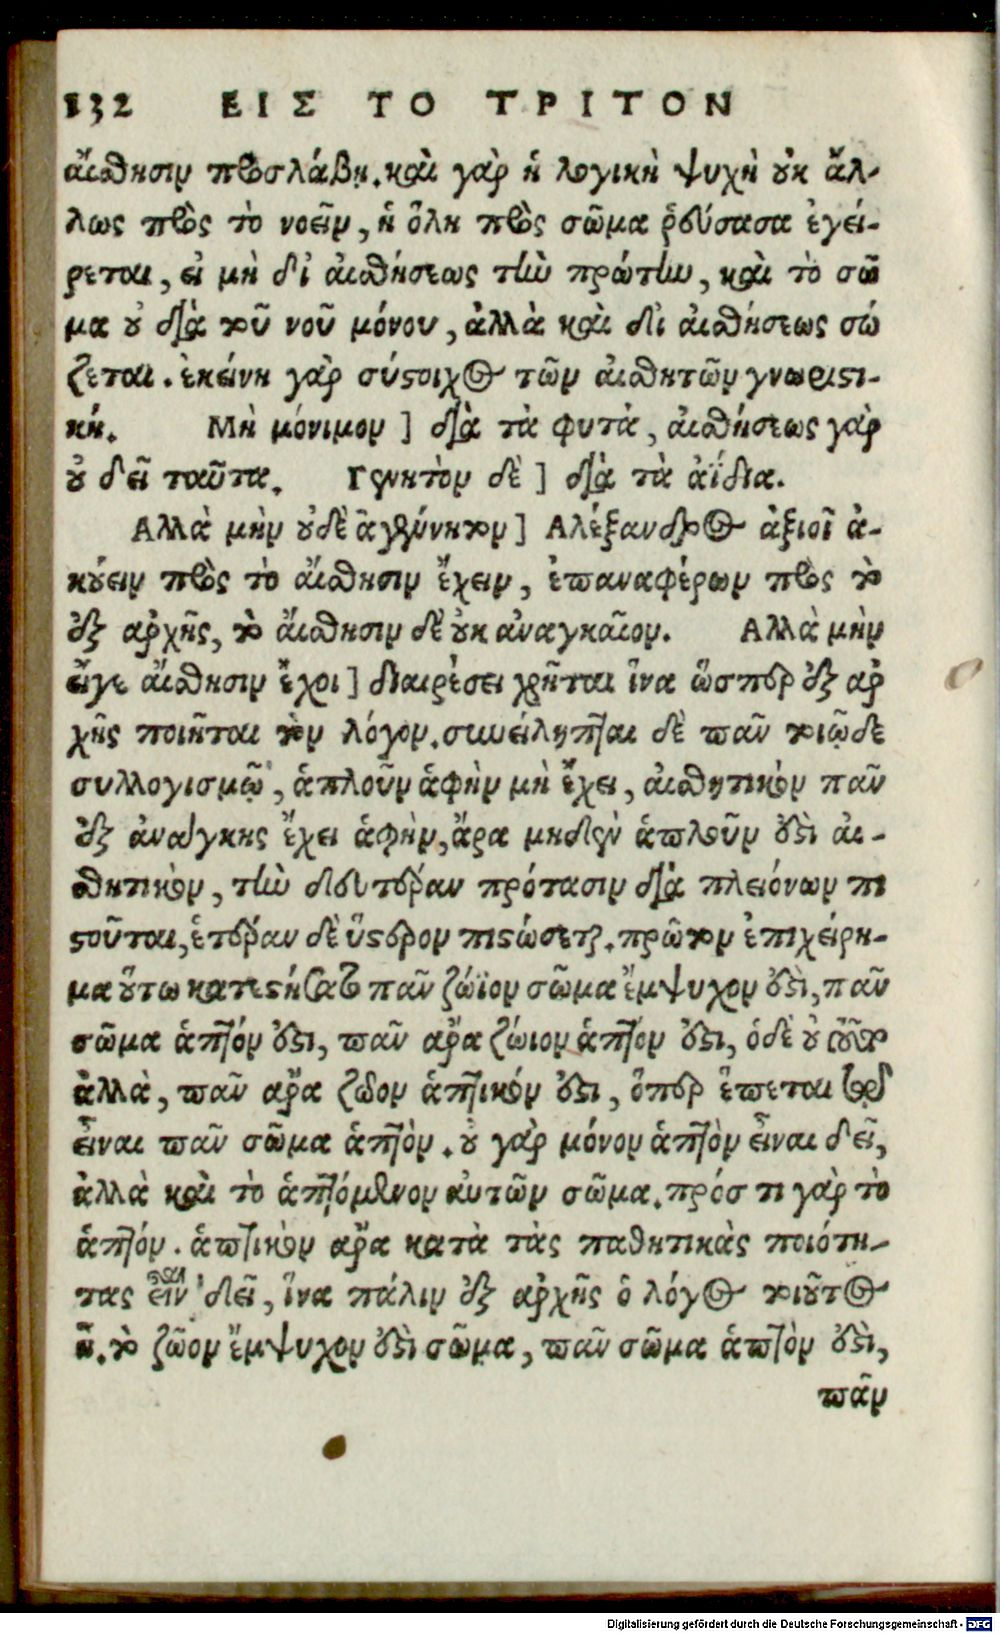 132 ΕΙΣ ΤΟ ΤΡΙΤΟΝ
αἴσθησιν προσλάβη. καὶ γὰρ ἡ λογικὴ ψυχὴ οὐκ ἄλ-
λως πρὸς τὸ νοεῖν, ἢ ὅλη πρὸς σῶμα ῥεύσασα ἐγεί-
ρεται, εἰ μὴ δι' αἰσθήσεως τὴν πρώτην, καὶ τὸ σῶ
μα οὐ διὰ τοῦ νοῦ μόνου, ἀλλὰ καὶ δι' αἰσθήσεως σώ
ζεται. ἐκείνη γὰρ σύστοιχος τῶν αἰσθητῶν γνωριστι-
κή. Μὴ μόνιμον ] διὰ τὰ φυτά, αἰσθήσεως γὰρ
οὐ δεῖ ταῦτα. Γεννητὸν δὲ ] διὰ τὰ ἀΐδια.
Αλλὰ μὴν οὐδὲ ἀγέννητον ] Αλέξανδρος ἀξιοῖ ἀ-
κούειν πρὸς τὸ αἴσθησιν ἔχειν, ἐπαναφέρων πρὸς τὸ
ἐξ αρχῆς, τὸ αἴσθησιν δὲ οὐκ ἀναγκαῖον. Αλλὰ μὴν
εἴγε αἴσθησιν ἔχοι ] διαιρέσει χρῆται ἵνα ὥσπερ ἐξ αρ
χῆς ποιῆται τὸν λόγον. συνείληπται δὲ παν τοιῷδε
συλλογισμῷ, ἁπλοῦν ἁφὴν μὴ ἔχει, αἰσθητικὸν παν
ἐξ ἀνάγκης ἔχει ἁφὴν, ἄρα μηδὲν ἁπλοῦν ἐστὶ αἰ-
σθητικὸν, τὴν δευτέραν πρότασιν διὰ πλειόνων πι
στοῦται, ἑτέραν δὲ ὕστερον πιστώσεται. πρῶτον ἐπιχείρη-
μα οὕτω κατεστήσατο παν ζώϊον σῶμα ἔμψυχον ἐστὶ, παν
σῶμα ἁπτόν ἐστι, παν αρα ζώιον ἁπτόν ἐστι, ὁδὲ οὐ τοῦτο
ἀλλὰ, παν αρα ζῶον ἁπτικόν ἐστι, ὅπερ ἕπεται τῷ
εἶναι παν σῶμα ἁπτὸν. οὐ γὰρ μόνον ἁπτὸν εἶναι δεῖ,
ἀλλὰ καὶ τὸ ἁπτόμενον αὐτῶν σῶμα. πρόσ τι γὰρ τὸ
ἁπτόν. ἁπτικὸν αρα κατὰ τὰς παθητικὰς ποιότη-
τας εἶναι δεῖ, ἵνα πάλιν ἐξ αρχῆς ὁ λόγος τοιοῦτος
ῇ. τὸ ζῶον ἔμψυχον ἐστὶ σῶμα, παν σῶμα ἁπτὸν ἐστὶ,
παν
Digitalisierung gefördert durch die Deutsche Forschungsgemeinschaft - DFG